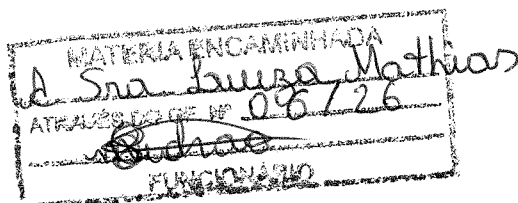 MATERIA ENCAMINHADA
A Sra Luiza Mathias
ATRAVÉS DO OF Nº 06/26
FUNCIONÁRIO